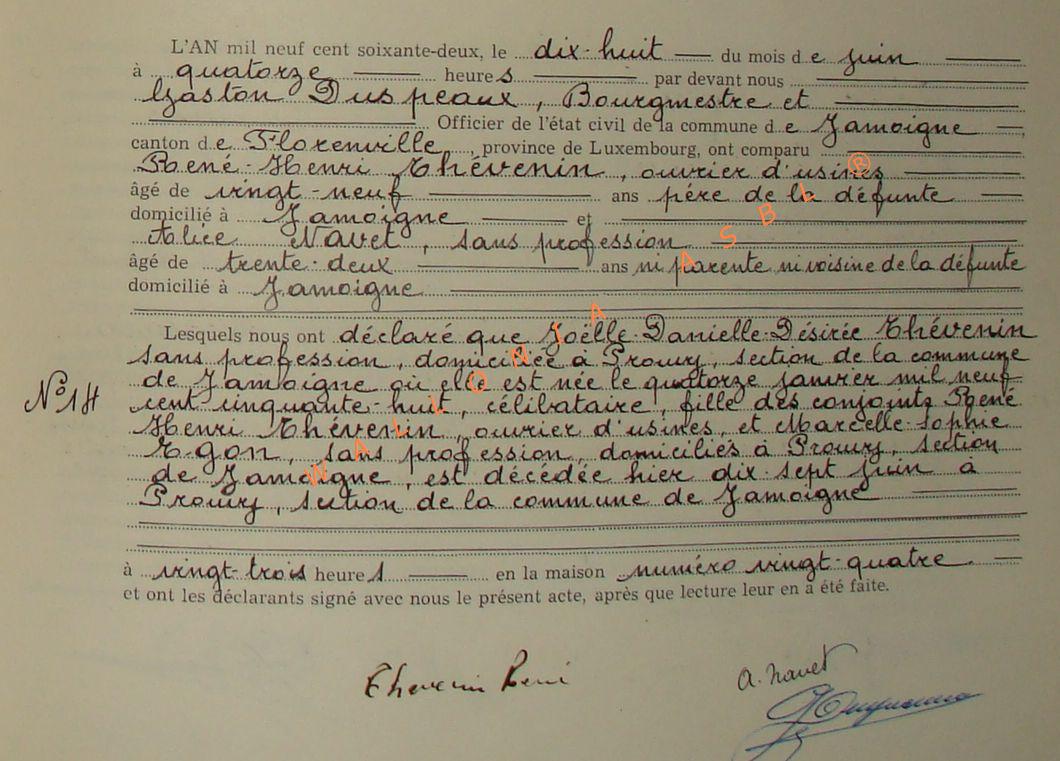 L'AN mil neuf cent soixante-deux, le dix-huit du mois de juin
à quatorze heures par devant nous
Gaston Duspeaux, Bourgmestre et
Officier de l'état civil de la commune de Jamoigne,
canton de Florenville, province de Luxembourg, ont comparu
René-Henri Thévenin, ouvrier d'usines
âgé de vingt-neuf ans père de la défunte
domicilié à Jamoigne et
Alice Navet, sans profession
âgé de trente-deux ans ni parente ni voisine de la défunte
domicilié à Jamoigne
Lesquels nous ont déclaré que Joëlle-Danielle-Désirée Thévenin
sans profession, domiciliée à Prouvy, section de la commune
de Jamoigne où elle est née le quatorze janvier mil neuf
N° 14
cent cinquante-huit, célibataire, fille des conjoints René
Henri Thévenin, ouvrier d'usines, et Marcelle-Sophie
Egon, sans profession, domiciliés à Prouvy, section
de Jamoigne, est décédée hier dix-sept juin à
Prouvy, section de la commune de Jamoigne
à vingt-trois heures en la maison numéro vingt-quatre
et ont les déclarants signé avec nous le présent acte, après que lecture leur en a été faite.
Thevenin René
A. Navet
WALLONIA ASBL ®